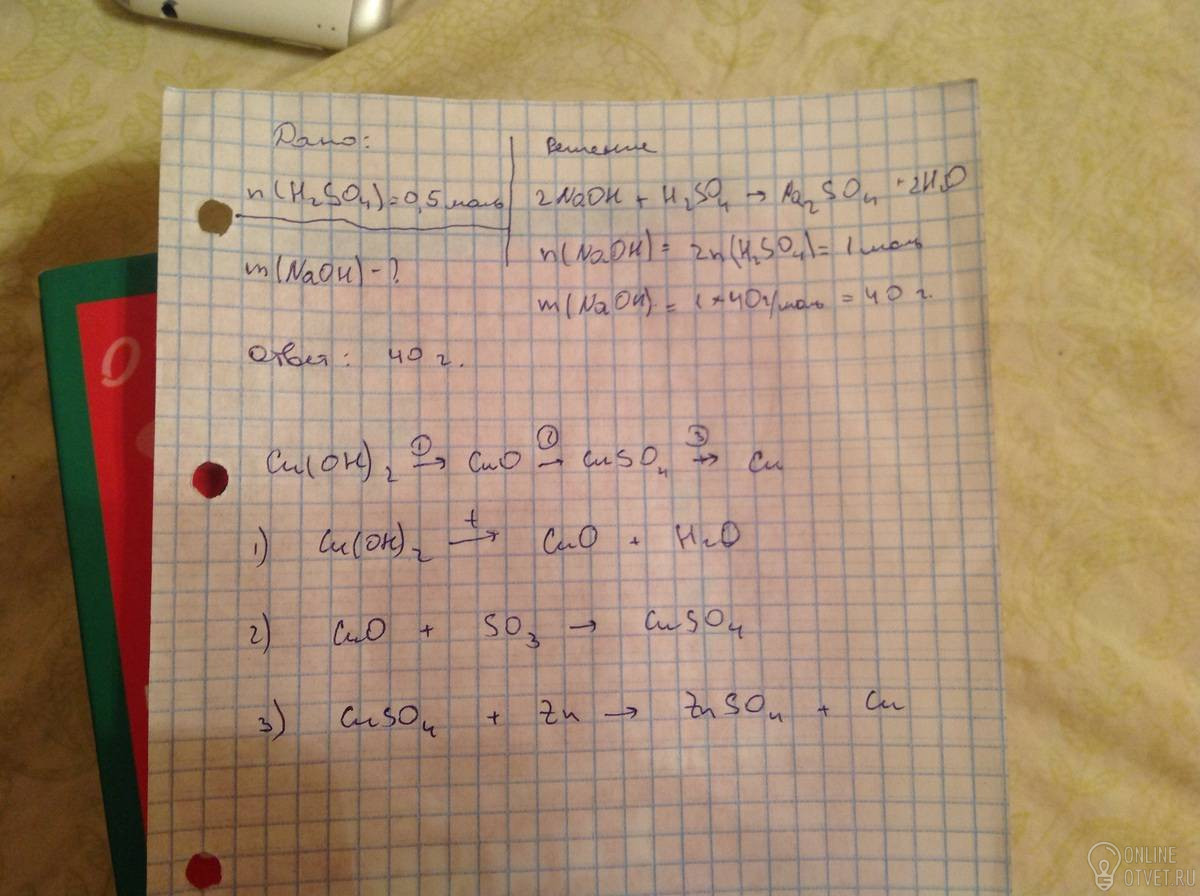 Дано:
Решение
n(H₂SO₄)=0,5 моль
2NaOH + H₂SO₄ → Na₂SO₄ + 2H₂O
m(NaOH) - ?
n(NaOH) = 2n(H₂SO₄) = 1 моль
m(NaOH) = 1 * 40 г/моль = 40 г.
Ответ: 40 г.
Cu(OH)₂ ①→ CuO ②→ CuSO₄ ③→ Cu
1) Cu(OH)₂ t→ CuO + H₂O
2) CuO + SO₃ → CuSO₄
3) CuSO₄ + Zn → ZnSO₄ + Cu
ONLINE
OTVET.RU